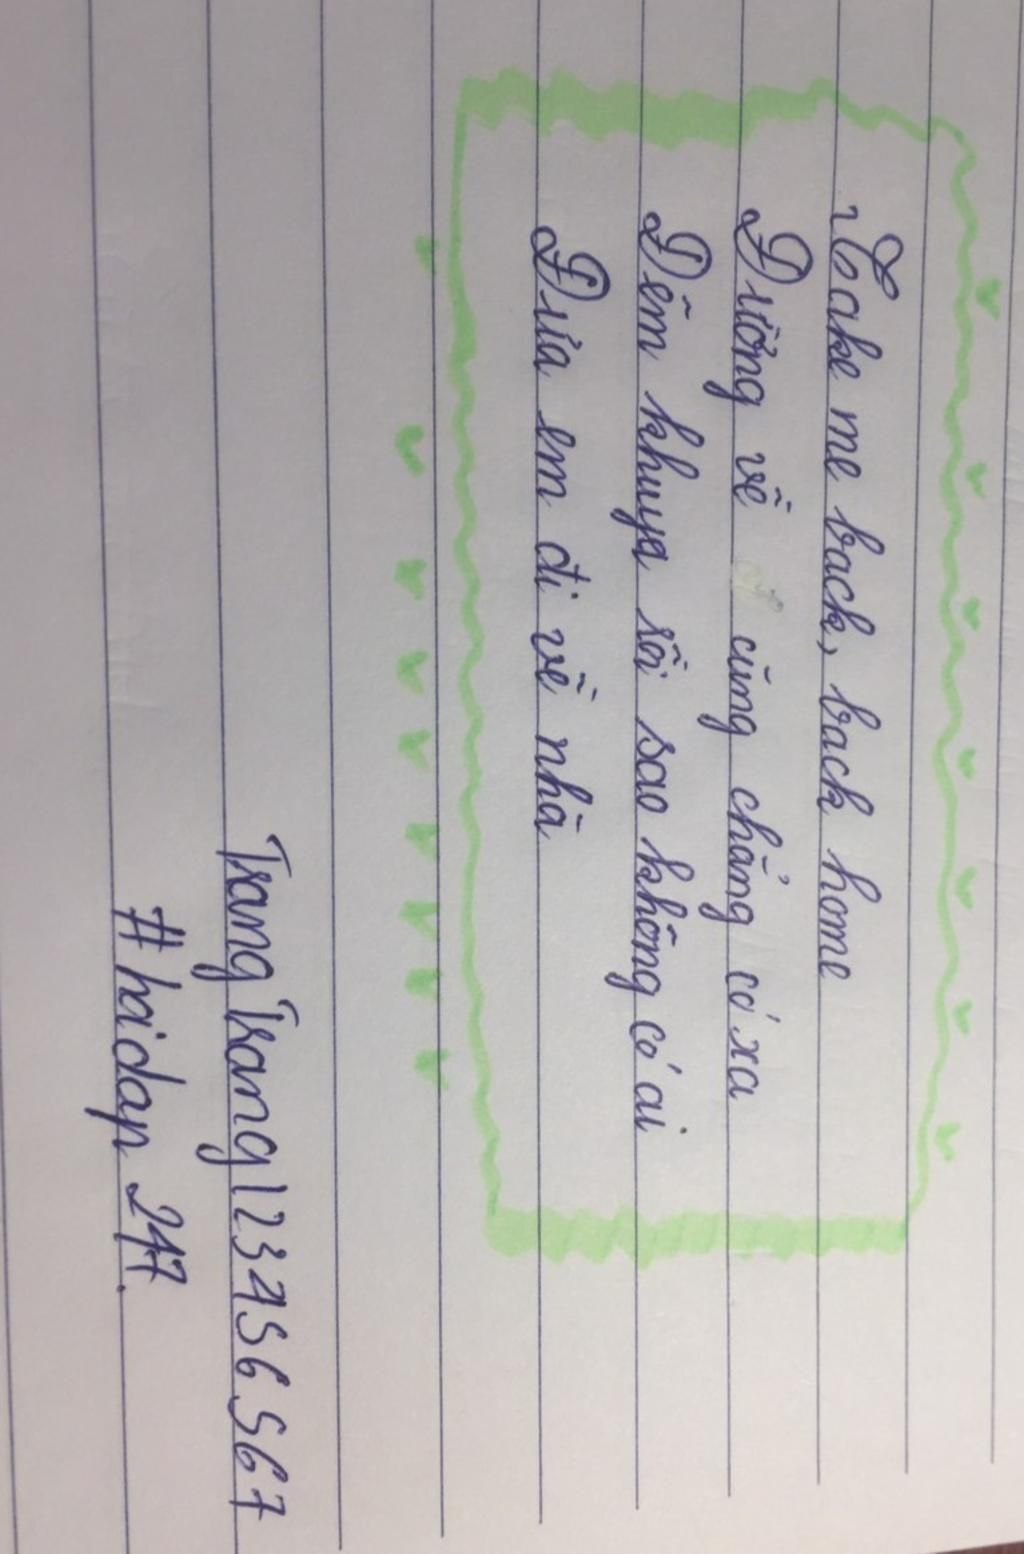 Take me back, back home
Đường về cũng chẳng có xa
Đêm khuya rồi sao không có ai
Đưa em đi về nhà
Trang Trang 123456567
#hoidap 247.